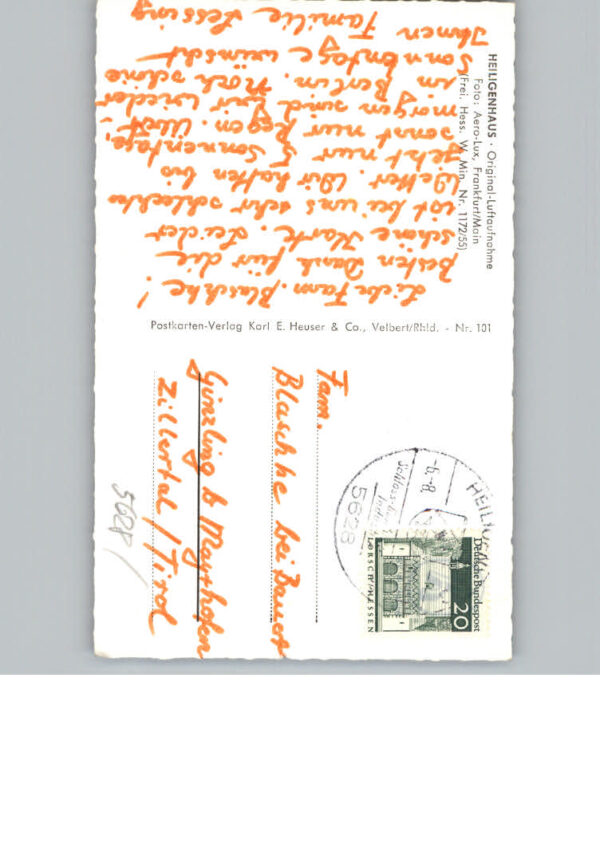 HEILIGENHAUS · Original-Luftaufnahme
Foto: Aero-Lux, Frankfurt/Main
(Frei. Hess. W. Min. Nr. 1172/55)
Liebe Fam. Blaschke!
Besten Dank für die
schöne Karte. Leider
ist bei uns sehr schlechtes
Wetter. Wir hatten bis
jetzt nur 5 Sonnentage,
sonst nur Regen. Über-
morgen sind wir wieder
in Berlin. Noch schöne
Sonnentage wünscht
Ihnen
Familie Lessing
Postkarten-Verlag Karl E. Heuser & Co., Velbert/Rhld. - Nr. 101
Fam.
Blaschke bei Bauer
Ginzling b Mayrhofen
Zillertal / Tirol
5628/
HEILIG
-6.-8.
Schloss
5628
Deutsche Bundespost
20
LORSCH/HESSEN